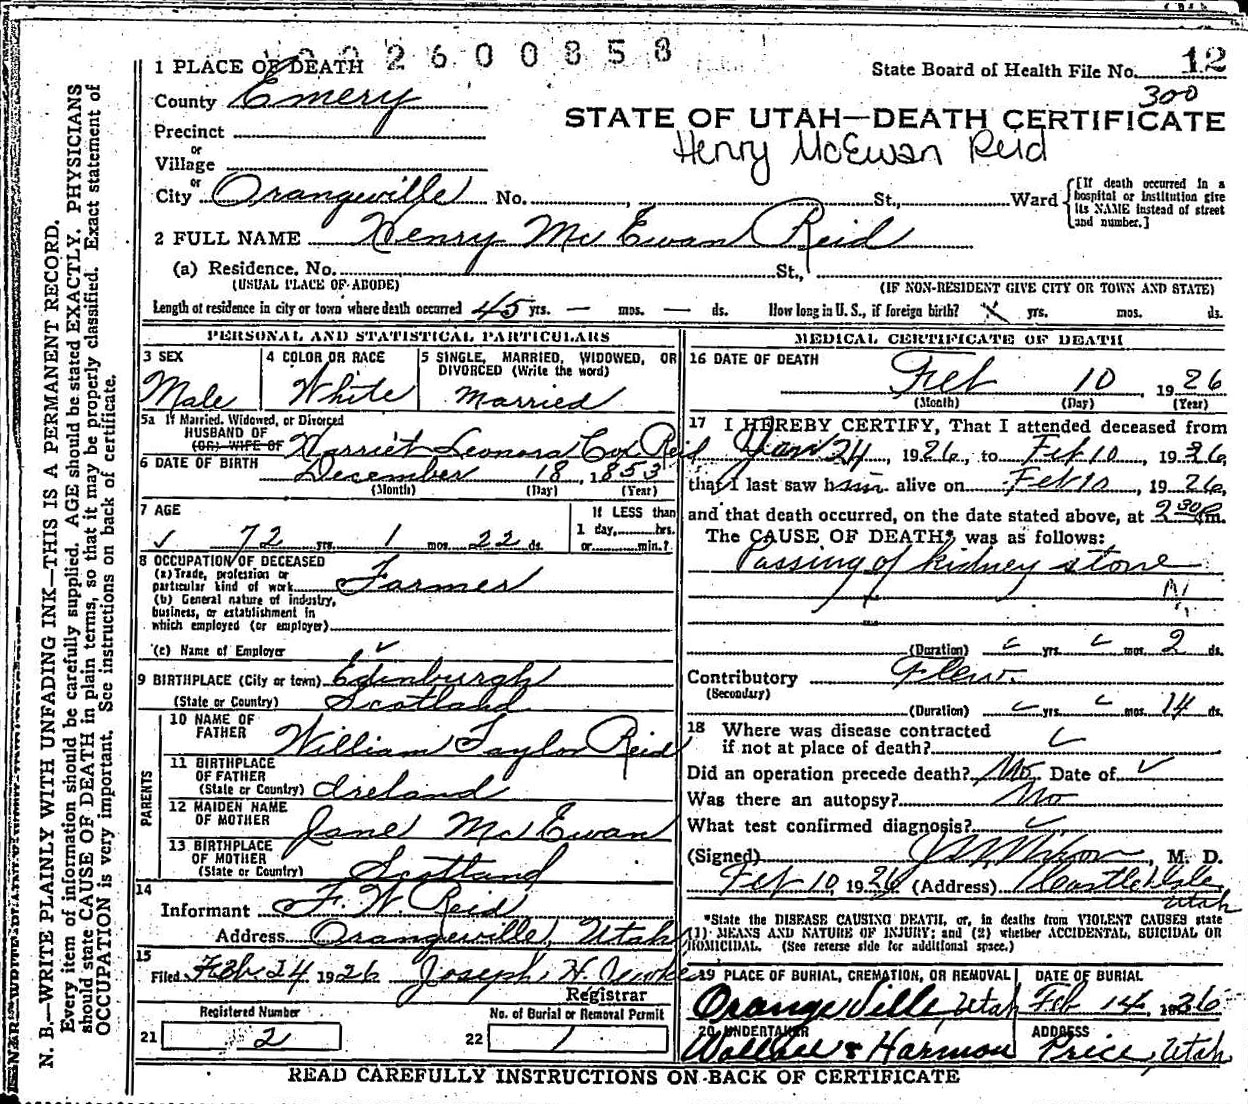 2600858
1 PLACE OF DEATH
State Board of Health File No. 12
300
County Emery
STATE OF UTAH—DEATH CERTIFICATE
Precinct
or
Village
Henry McEwan Reid
or
City Orangeville No. , St., Ward {[If death occurred in a hospital or institution give its NAME instead of street and number.]
2 FULL NAME Henry McEwan Reid
(a) Residence. No. St.,
(USUAL PLACE OF ABODE) (IF NON-RESIDENT GIVE CITY OR TOWN AND STATE)
Length of residence in city or town where death occurred 45 yrs. — mos. — ds. How long in U. S., if foreign birth? X yrs. mos. ds.
PERSONAL AND STATISTICAL PARTICULARS
3 SEX
Male
4 COLOR OR RACE
White
5 SINGLE, MARRIED, WIDOWED, OR
DIVORCED (Write the word)
Married
5a If Married, Widowed, or Divorced
HUSBAND OF
(OR) WIFE OF Harriet Leonora Cox Reid
6 DATE OF BIRTH December 18, 1853
(Month) (Day) (Year)
7 AGE
72 yrs. 1 mos. 22 ds.
If LESS than
1 day, hrs.
or min.?
8 OCCUPATION OF DECEASED
(a) Trade, profession or
particular kind of work Farmer
(b) General nature of industry,
business, or establishment in
which employed (or employer)
(c) Name of Employer
9 BIRTHPLACE (City or town) Edinburgh
(State or Country) Scotland
PARENTS
10 NAME OF
FATHER William Taylor Reid
11 BIRTHPLACE
OF FATHER
(State or Country) Ireland
12 MAIDEN NAME
OF MOTHER Jane McEwan
13 BIRTHPLACE
OF MOTHER
(State or Country) Scotland
14
Informant F. W. Reid
Address Orangeville, Utah
15
Filed Feb. 24 1926 Joseph H.
Registrar
Registered Number
21 2
No. of Burial or Removal Permit
22 1
MEDICAL CERTIFICATE OF DEATH
16 DATE OF DEATH
Feb 10 1926
(Month) (Day) (Year)
17 I HEREBY CERTIFY, That I attended deceased from
Jan 24, 1926, to Feb 10, 1926,
that I last saw him alive on Feb 10, 1926,
and that death occurred, on the date stated above, at 2 30 P m.
The CAUSE OF DEATH* was as follows:
Passing of kidney stone
(Duration) yrs. mos. 2 ds.
Contributory Flew.
(Secondary)
(Duration) yrs. mos. 14 ds.
18 Where was disease contracted
if not at place of death?
Did an operation precede death? No Date of
Was there an autopsy? No
What test confirmed diagnosis?
(Signed) Nixon, M. D.
Feb 10 1926 (Address) Castle Dale,
Utah
*State the DISEASE CAUSING DEATH, or, in deaths from VIOLENT CAUSES state
(1) MEANS AND NATURE OF INJURY; and (2) whether ACCIDENTAL, SUICIDAL OR
HOMICIDAL. (See reverse side for additional space.)
19 PLACE OF BURIAL, CREMATION, OR REMOVAL
Orangeville, Utah
DATE OF BURIAL
Feb 14 1926
20 UNDERTAKER
Wallace & Harmon
ADDRESS
Price, Utah
READ CAREFULLY INSTRUCTIONS ON BACK OF CERTIFICATE
N. B.—WRITE PLAINLY WITH UNFADING INK—THIS IS A PERMANENT RECORD.
Every item of information should be carefully supplied. AGE should be stated EXACTLY. PHYSICIANS
should state CAUSE OF DEATH in plain terms, so that it may be properly classified. Exact statement of
OCCUPATION is very important. See instructions on back of certificate.